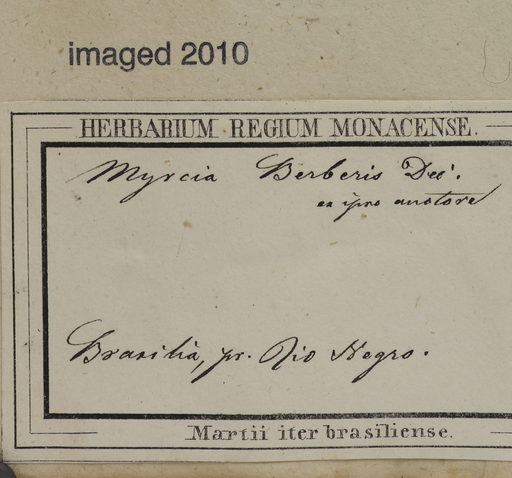 imaged 2010
HERBARIUM REGIUM MONACENSE.
Myrcia Berberis Dec.
ex ipso auctore
Brasilia, pr. Rio Negro.
Martii iter brasiliense.